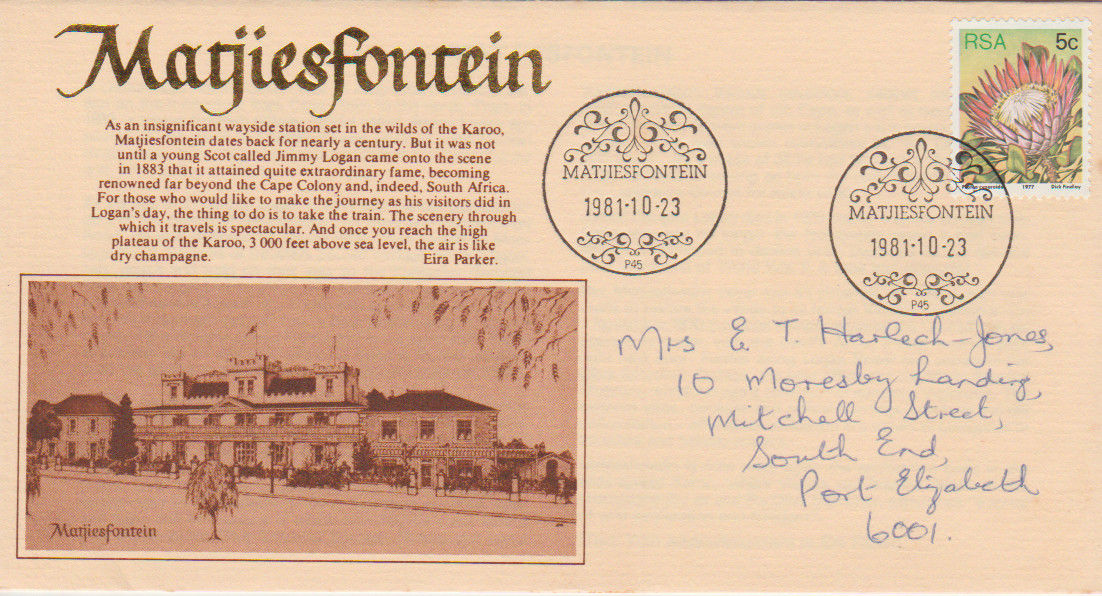 Matjiesfontein
As an insignificant wayside station set in the wilds of the Karoo,
Matjiesfontein dates back for nearly a century. But it was not
until a young Scot called Jimmy Logan came onto the scene
in 1883 that it attained quite extraordinary fame, becoming
renowned far beyond the Cape Colony and, indeed, South Africa.
For those who would like to make the journey as his visitors did in
Logan's day, the thing to do is to take the train. The scenery through
which it travels is spectacular. And once you reach the high
plateau of the Karoo, 3 000 feet above sea level, the air is like
dry champagne. Eira Parker.
Matjiesfontein
MATJIESFONTEIN
1981-10-23
P45
RSA 5c
Protea cynaroides 1977 Dick Findlay
MATJIESFONTEIN
1981-10-23
P45
Mrs E T. Harlech-Jones,
10 Moresby Landing,
Mitchell Street,
South End,
Port Elizabeth
6001.